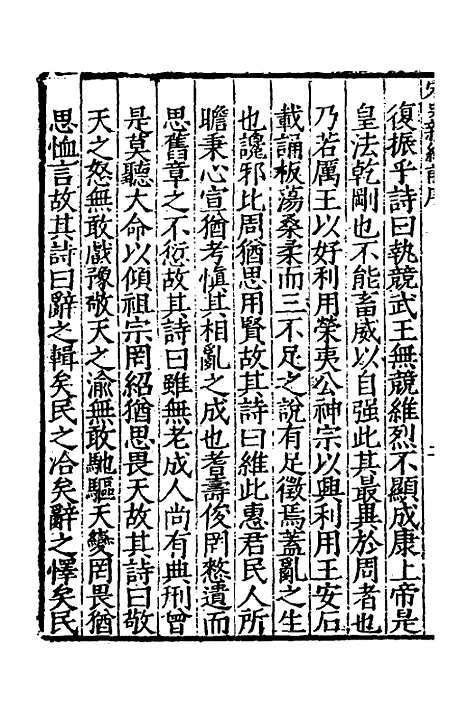 復振乎詩曰執競武王無競維烈不顯成康上帝是
皇法乾剛也不能畜威以自强此其最異於周者也
乃若厲王以好利用榮夷公神宗以興利用王安石
載誦板蕩桑柔而三不足之說有足徵焉蓋亂之生
也讒邪比周猶思用賢故其詩曰維此惠君民人所
瞻秉心宣猶考慎其相亂之成也耆壽俊罔憗遺而
思舊章之不愆故其詩曰雖無老成人尚有典刑曾
是莫聽大命以傾祖宗罔紹猶思畏天故其詩曰敬
天之怒無敢戲豫敬天之渝無敢馳驅天變罔畏猶
思恤言故其詩曰辭之輯矣民之洽矣辭之懌矣民